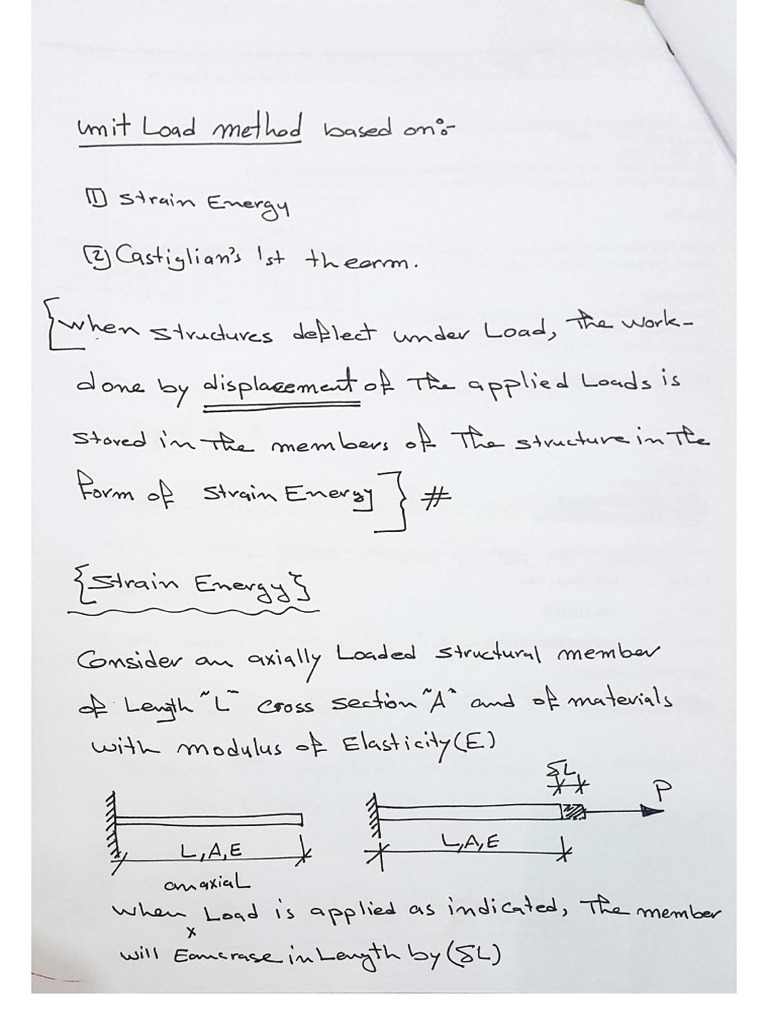 unit Load method based on:-
[1] strain Energy
[2] Castiglian's 1st theorm.
[when structures deflect under Load, The work-
done by displacement of The applied Loads is
stored in The members of The structure in The
form of strain Energy} #
{strain Energy}
Consider an axially Loaded structural member
of Length "L" cross section "A" and of materials
with modulus of Elasticity (E)
δL
P
L,A,E
L,A,E
an axial
when x Load is applied as indicated, The member
will Eamcrase in Length by (δL)